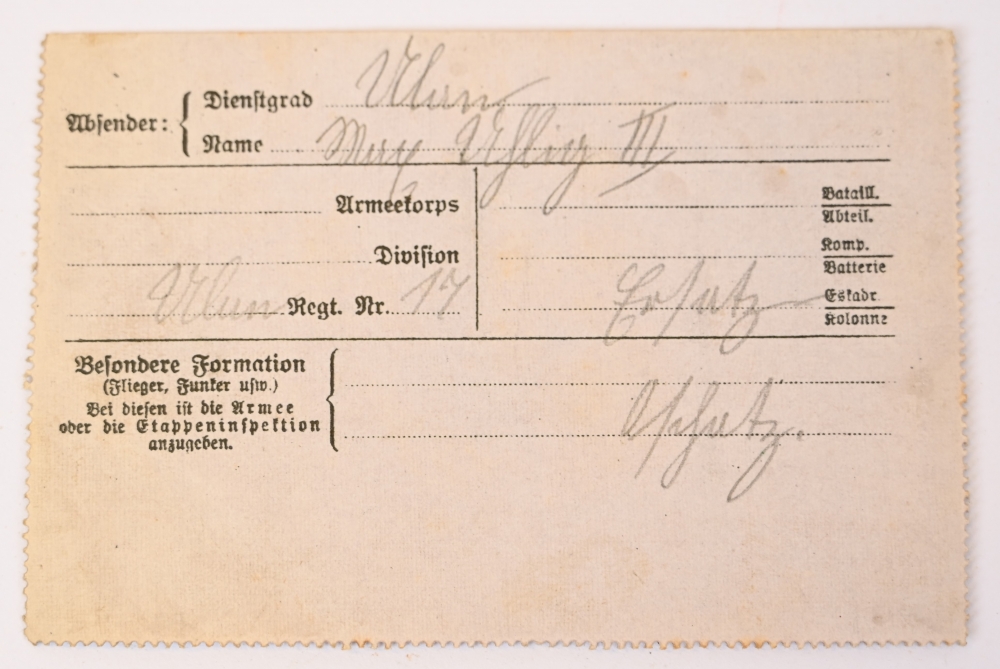 Absender: Dienstgrad Ulan
Name Max Uhlig III
Armeekorps
Division
Ulan Regt. Nr. 17
Bataill.
Abteil.
Komp.
Batterie
Ersatz Eskadr.
Kolonne
Besondere Formation
(Flieger, Funker usw.)
Bei diesen ist die Armee
oder die Etappeninspektion
anzugeben.
Oschatz.